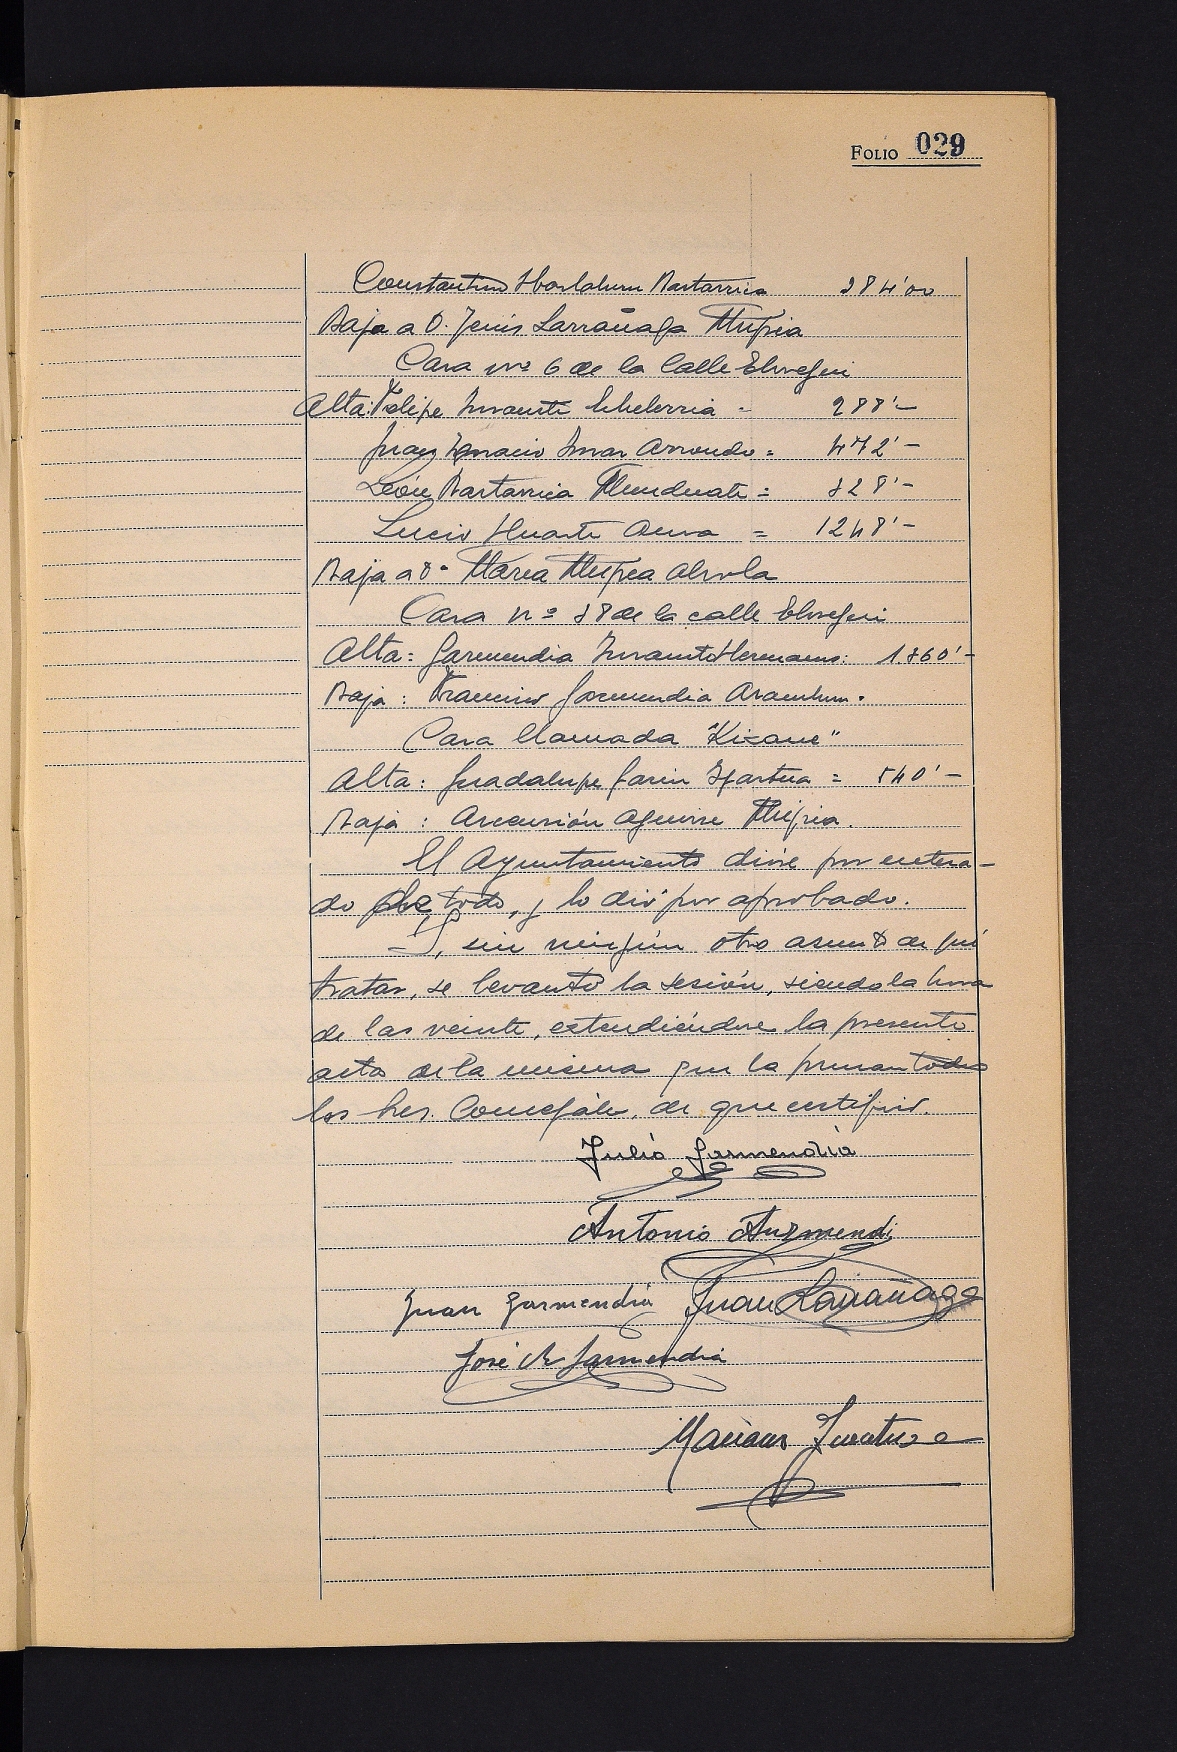 FOLIO 029
Constantino Nartarrica 284'00
Baja a D. Jesús Larrañaga Mugica
Casa nº 6 de la Calle Elosegui
Alta: Felipe Echeberria = 288'-
Juan Ignacio Arrondo = 472'-
León Bastarrica Mendarte = 328'-
Lucio Huarte = 1248'-
Baja a Dª Maria Mugica
Casa nº 38 de la calle Elosegui
Alta: Garmendia Hermanos: 1.860'-
Baja: Francisco Garmendia Aramburu.
Casa llamada "Kizane"
Alta: Guadalupe Garin = 540'-
Baja: Ascensión Aguirre Mugica.
El Ayuntamiento dióse por entera-
do de todo, y lo dió por aprobado.
= Y, sin ningún otro asunto de qué
tratar, se levantó la sesión, siendo la hora
de las veinte, extendiéndose la presente
acta de la misma que la firman todos
los Sres. Concejales, de que certifico.
Julio Garmendia
Antonio Auzmendi
Juan Garmendia Juan Larrañaga
José Garmendia
Mariano